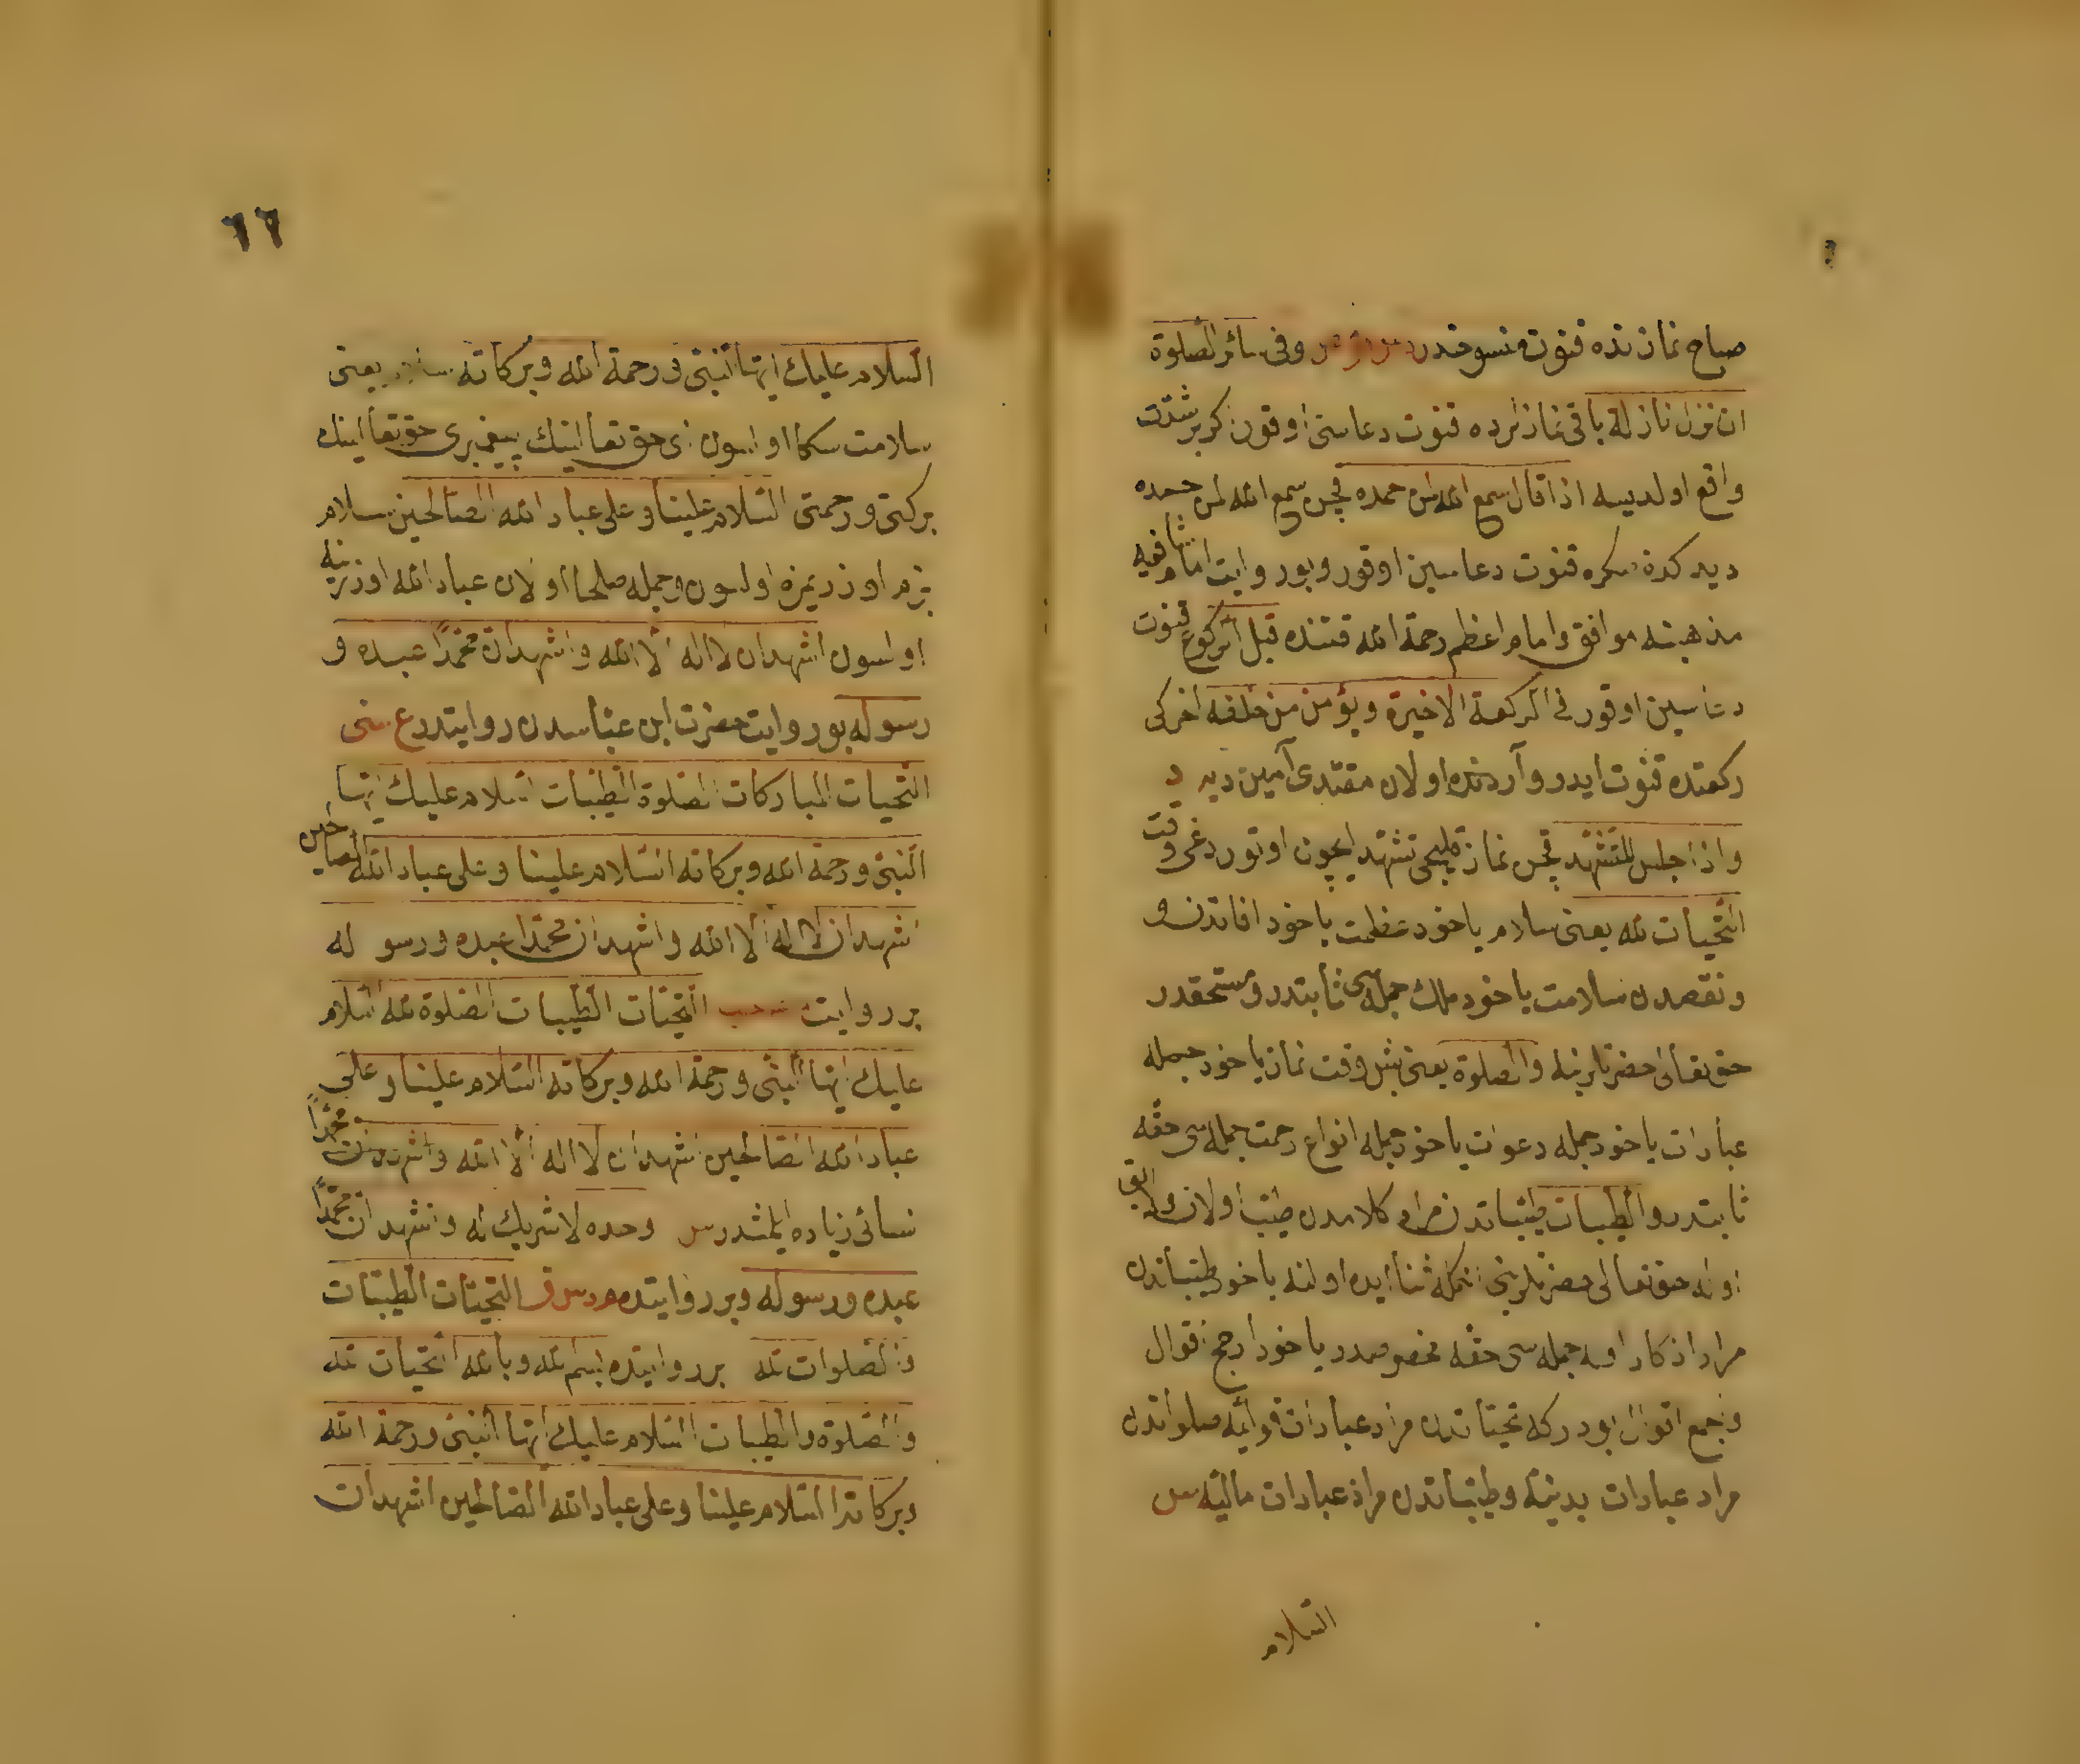 صباح نمازنده قنوت منسوخدر وفى سائر الصلوة
ان نزل نازلة باقى نمازلرده قنوت دعاسنى اوقون كر بر شدت
واقع اولديسه اذا قال سمع الله لمن حمده قچن سمع الله لمن حمده
ديدكدنصكره قنوت دعاسين اوقور وبو روايت امام شافعيه
مذهبنه موافق وامام اعظم رحمة الله قتنده قبل الركوع قنوت
دعاسين اوقور فى الركعة الاخيرة ويؤمن من خلفه اخركى
ركعتده قنوت ايدر و آردنده اولان مقتدى آمين ديه د
واذا جلس للتشهد قچن نماز قليجى تشهد ايچون اوتوردغى وقت
التحيات لله يعنى سلام ياخود عظمت ياخود افاتدن و
ونقصدن سلامت ياخود ملك جمله سى ثابتدر ومستحقدر
حق تعالى حضرتلرينه والصلوة يعنى بش وقت نماز ياخود جمله
عبادات ياخود جمله دعوات ياخود جمله انواع رحمت جمله سى حقه
ثابتدر والطيبات طيباتدن مراد كلامدن طيب اولان ولايق
اوله حق تعالى حضرتلرينى انكله ثنا ايده اولنه ياخود طيباتدن
مراد اذكار اوله جمله سى حقه مخصوصدر ياخود ارجح اقوال
وجمع اقوال بودركه تحياتدن مراد عبادات قوليه صلواتدن
مراد عبادات بدنيه وطيباتدن مراد عبادات ماليه س
السلام
٦٦
السلام عليك ايها النبى ورحمة الله وبركاته يعنى
سلامت سكا اولسون اى حق تعالينك پيغمبرى حق تعالينك
بركتى ورحمتى السلام علينا وعلى عباد الله الصالحين سلام
بزم اوزريمزه اولسون وجمله صلحا اولان عباد الله اوزرينه
اولسون اشهد ان لا اله الا الله واشهد ان محمدا عبده و
رسوله بو روايت حضرت ابن عباسدن روايتدر ع سنى
التحيات المباركات الصلوة الطيبات السلام عليك ايها
النبى ورحمة الله وبركاته السلام علينا وعلى عباد الله الصالحين
اشهد ان لا اله الا الله واشهد ان محمدا عبده ورسوله
بر روايت التحيات الطيبات الصلوة لله السلام
عليك ايها النبى ورحمة الله وبركاته السلام علينا وعلى
عباد الله الصالحين اشهد ان لا اله الا الله واشهد ان محمدا
نسائى زياده ايلمشدر س وحده لا شريك له واشهد ان محمدا
عبده ورسوله وبر روايتده التحيات الطيبات
والصلوات لله بر روايتده بسم الله وبالله التحيات لله
والصلوة والطيبات السلام عليك ايها النبى ورحمة الله
وبركاته السلام علينا وعلى عباد الله الصالحين اشهد ان